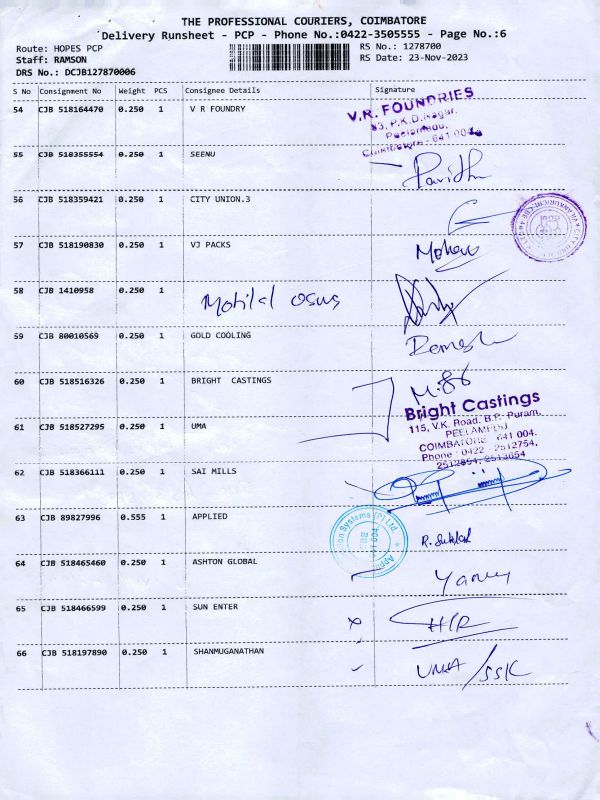 THE PROFESSIONAL COURIERS, COIMBATORE
Delivery Runsheet - PCP - Phone No.:0422-3505555 - Page No.:6
Route: HOPES PCP
RS No.: 1278700
Staff: RAMSON
RS Date: 23-Nov-2023
DRS No.: DCJB127870006
S No Consignment No Weight PCS Consignee Details Signature
54 CJB 518164470 0.250 1 V R FOUNDRY
V.R. FOUNDRIES
83, P.K.D.Nagar,
Peelamedu,
Coimbatore - 641 004
55 CJB 518355554 0.250 1 SEENU Pavithra
56 CJB 518359421 0.250 1 CITY UNION.3
57 CJB 518190830 0.250 1 VJ PACKS Mohan
58 CJB 1410958 0.250 1 Motilal Oswg
59 CJB 80010569 0.250 1 GOLD COOLING Ramesh
60 CJB 518516326 0.250 1 BRIGHT CASTINGS M.86
Bright Castings
115, V.K. Road, B.R. Puram,
PEELAMEDU
COIMBATORE - 641 004.
Phone : 0422 - 2512754,
2512854, 2513654
61 CJB 518527295 0.250 1 UMA
62 CJB 518366111 0.250 1 SAI MILLS
63 CJB 89827996 0.555 1 APPLIED
64 CJB 518465460 0.250 1 ASHTON GLOBAL
65 CJB 518466599 0.250 1 SUN ENTER
66 CJB 518197890 0.250 1 SHANMUGANATHAN UMA/SSK